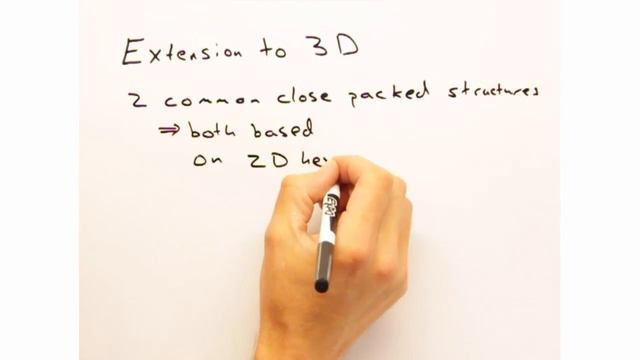 Extension to 3D
2 common close packed structures
⇒ both based
on 2D he
EXPO